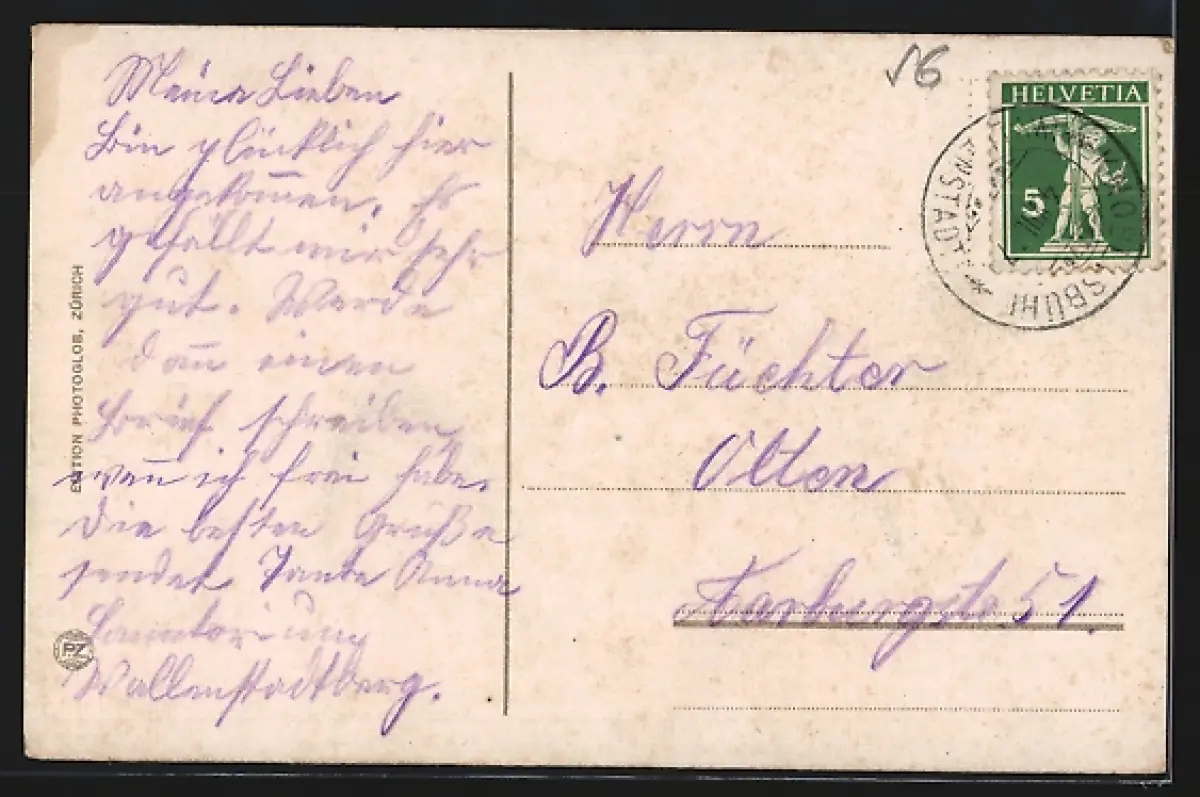 Meine Lieben
Bin glücklich hier
angekom̅en. Es
gefällt mir sehr
gut. Werde
dan̅ einen
Brief schreiben,
wen̅ ich frei habe.
Die besten Grüße
sendet Tante Anna
Sanatorium
Wallenstadtberg.
EDITION PHOTOGLOB, ZÜRICH
PZ
56
HELVETIA
5
Herrn
B. Füchter
Olten
Aarburgstr 51.